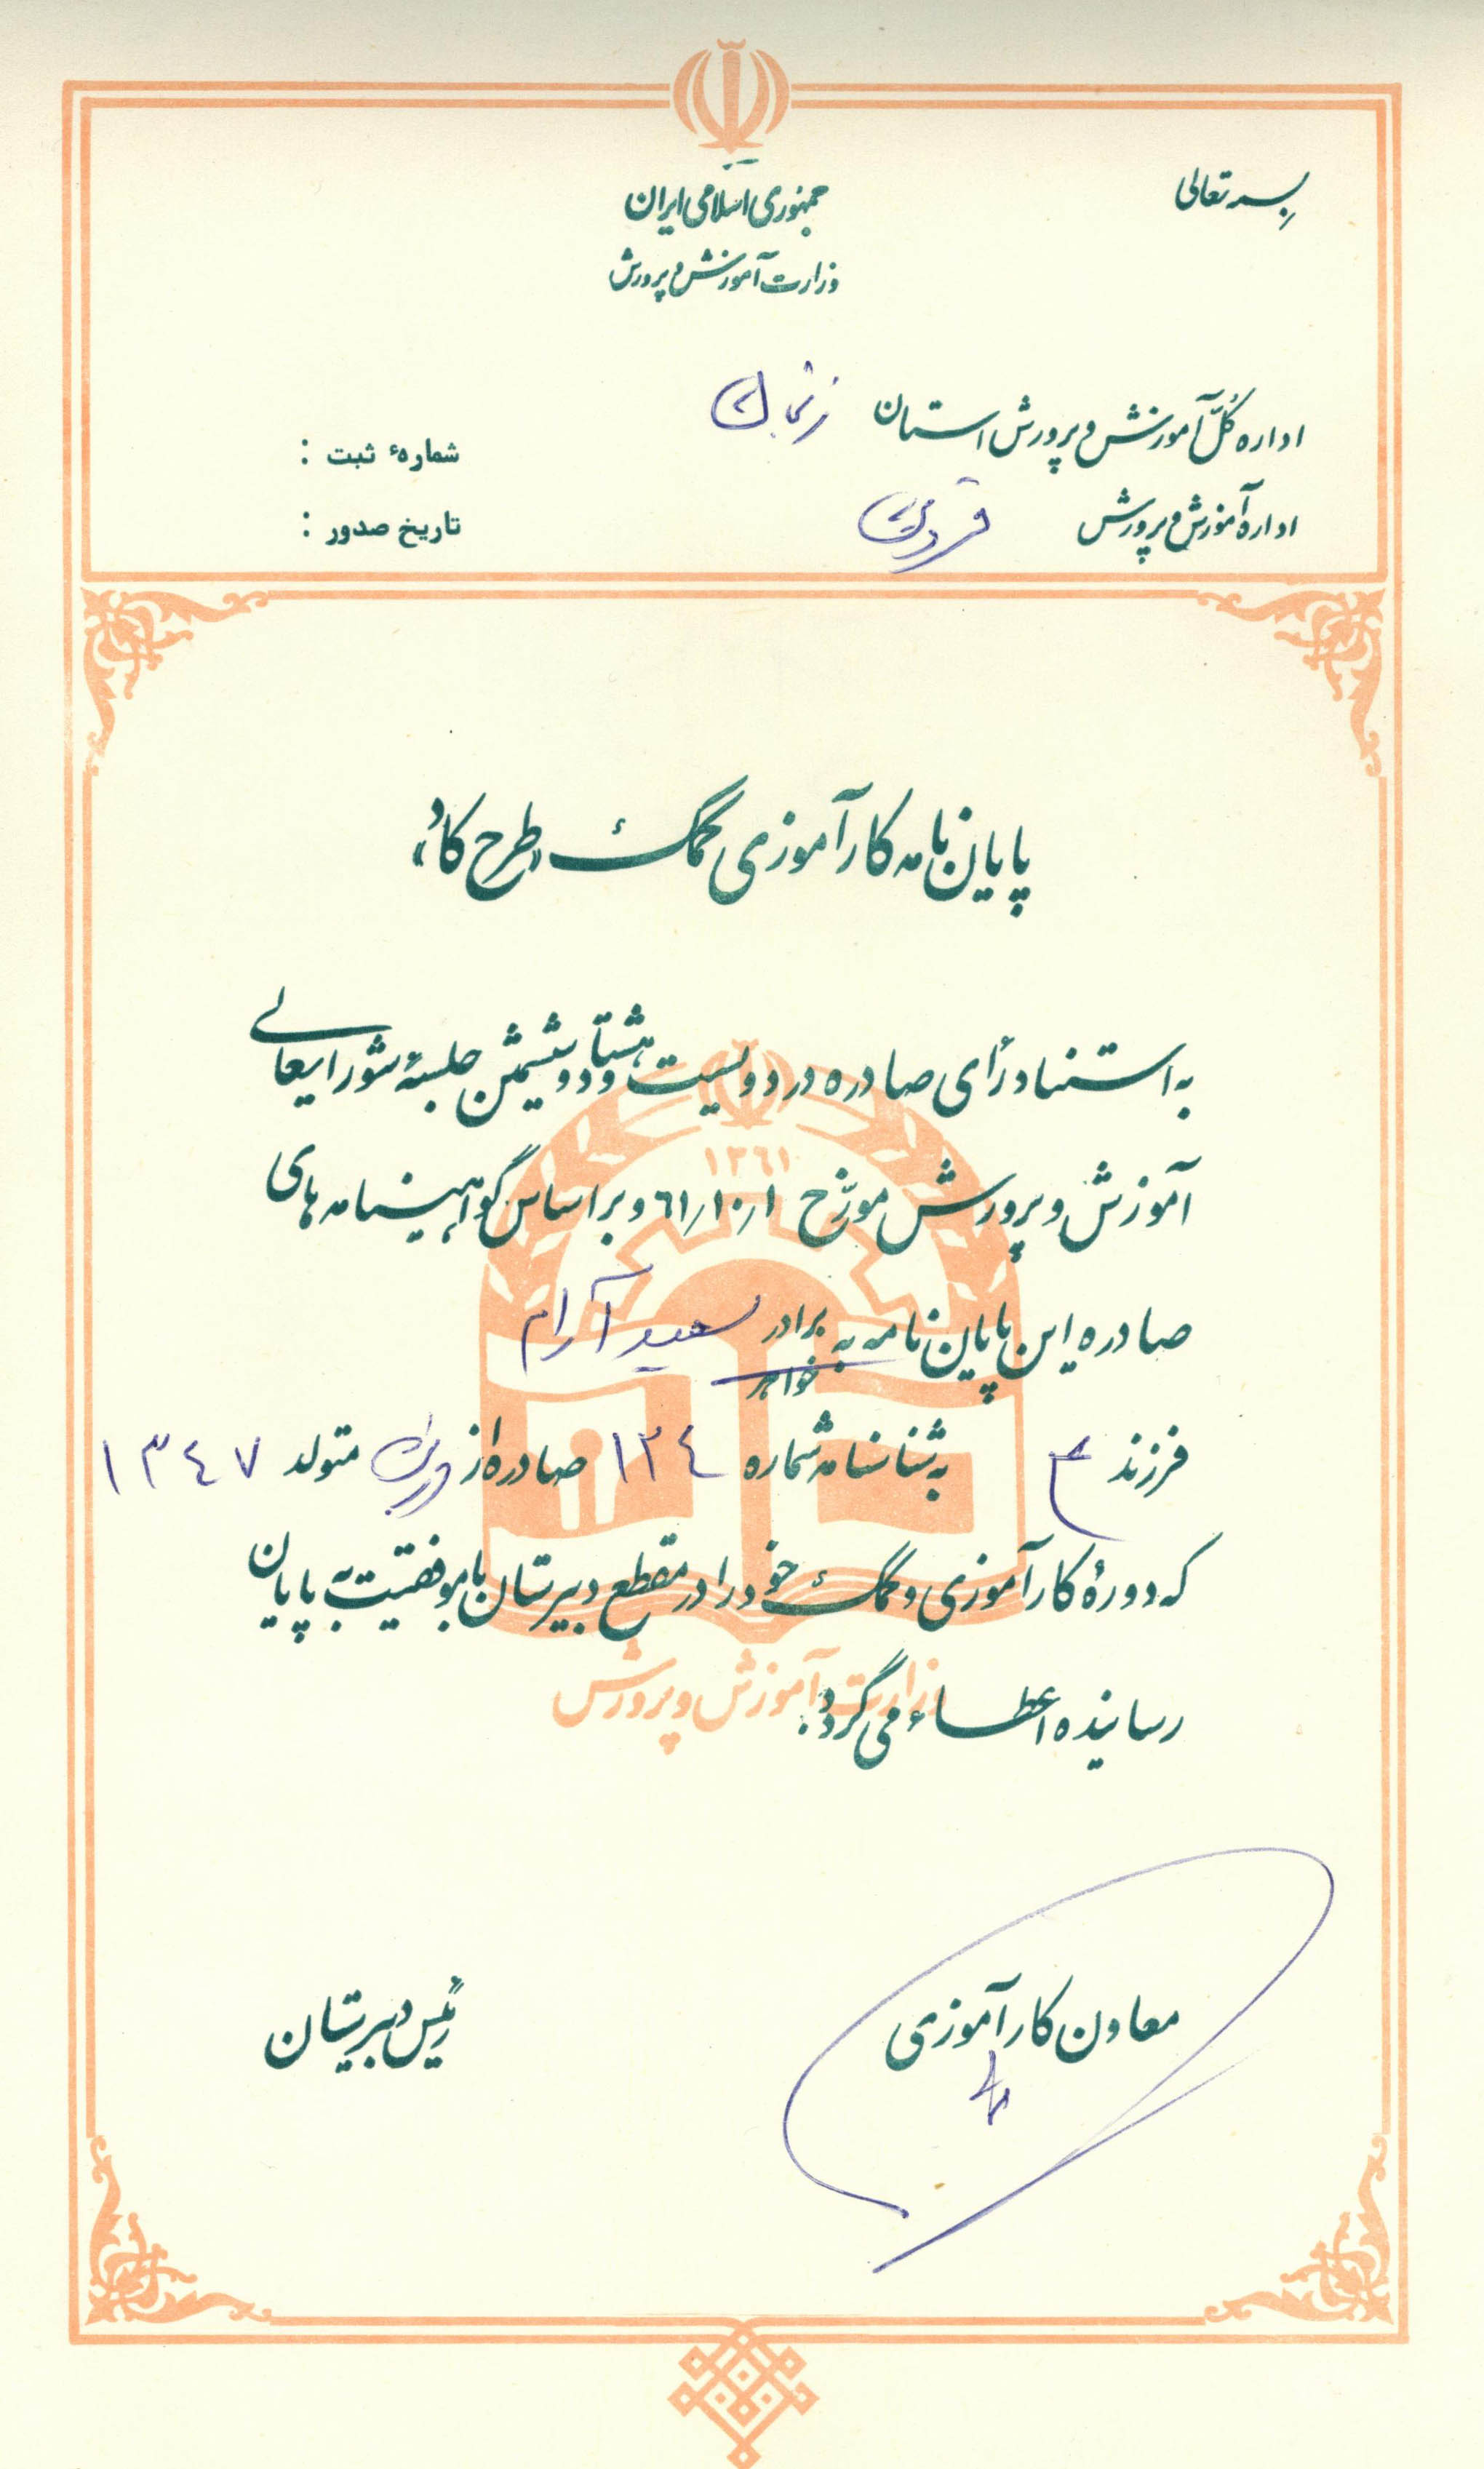 بسمه تعالی
جمهوری اسلامی ایران
وزارت آموزش و پرورش
اداره کلّ آموزش و پرورش استان زنجان
شمارهٔ ثبت :
اداره آموزش و پرورش
تاریخ صدور :
پایان نامه کارآموزی کمک «طرح کاد»
به استناد رأی صادره در دویست و هشتاد و ششمین جلسهٔ شورایعالی
۱۳۶۱
آموزش و پرورش مورّخ ۶۱٫۱۰٫۱ و بر اساس گواهینامه های
صادره این پایان نامه به برادر سعید آرام
خواهر
فرزند به شناسنامه شماره ۱۳۴ صادره از متولد ۱۳۴۷
که دورهٔ کارآموزی و کمک خود را در مقطع دبیرستان با موفقیت به پایان
رسانیده اعطاء می گردد.
وزارت آموزش و پرورش
معاون کارآموزی
رئیس دبیرستان